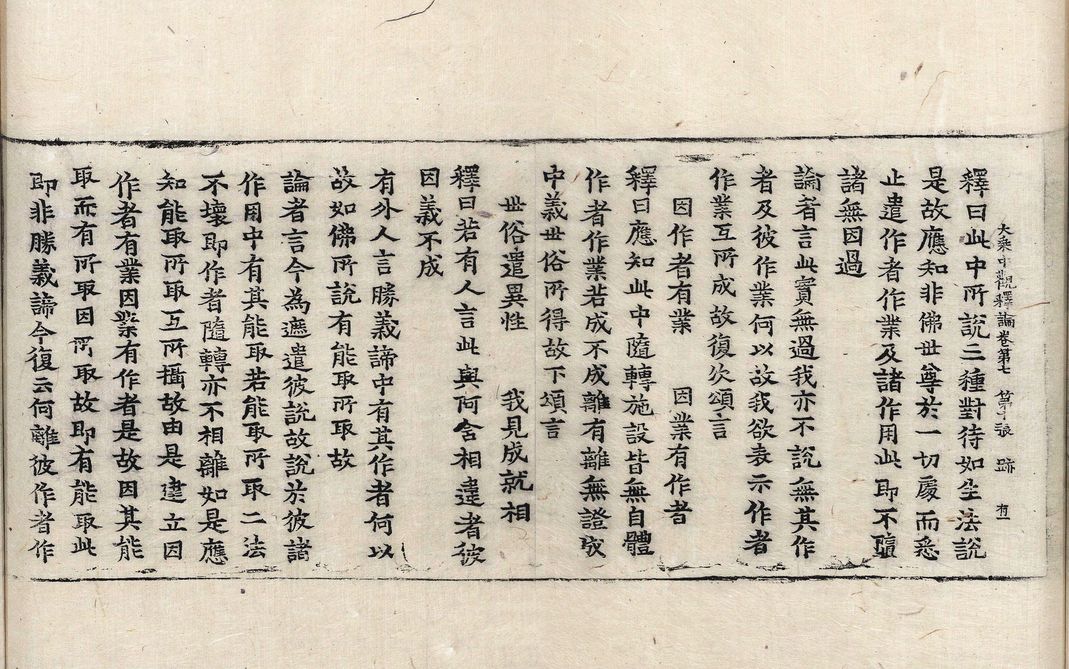 大乘中觀釋論卷第七 第十張 跡 有一
釋曰此中所說三種對待如生法說
是故應知非佛世尊於一切處而悉
止遣作者作業及諸作用此即不墮
諸無因過
論者言此實無過我亦不說無其作
者及彼作業何以故我欲表示作者
作業互所成故復次頌言
因作者有業 因業有作者
釋曰應知此中隨轉施設皆無自體
作者作業若成不成離有離無證成
中義世俗所得故下頌言
世俗遣異性 我見成就相
釋曰若有人言此與阿含相違者彼
因義不成
有外人言勝義諦中有其作者何以
故如佛所說有能取所取故
論者言今為遮遣彼說故說於彼諸
作用中有其能取若能取所取二法
不壞即作者隨轉亦不相離如是應
知能取所取互所攝故由是建立因
作者有業因業有作者是故因其能
取而有所取因所取故即有能取此
即非勝義諦今復云何離彼作者作